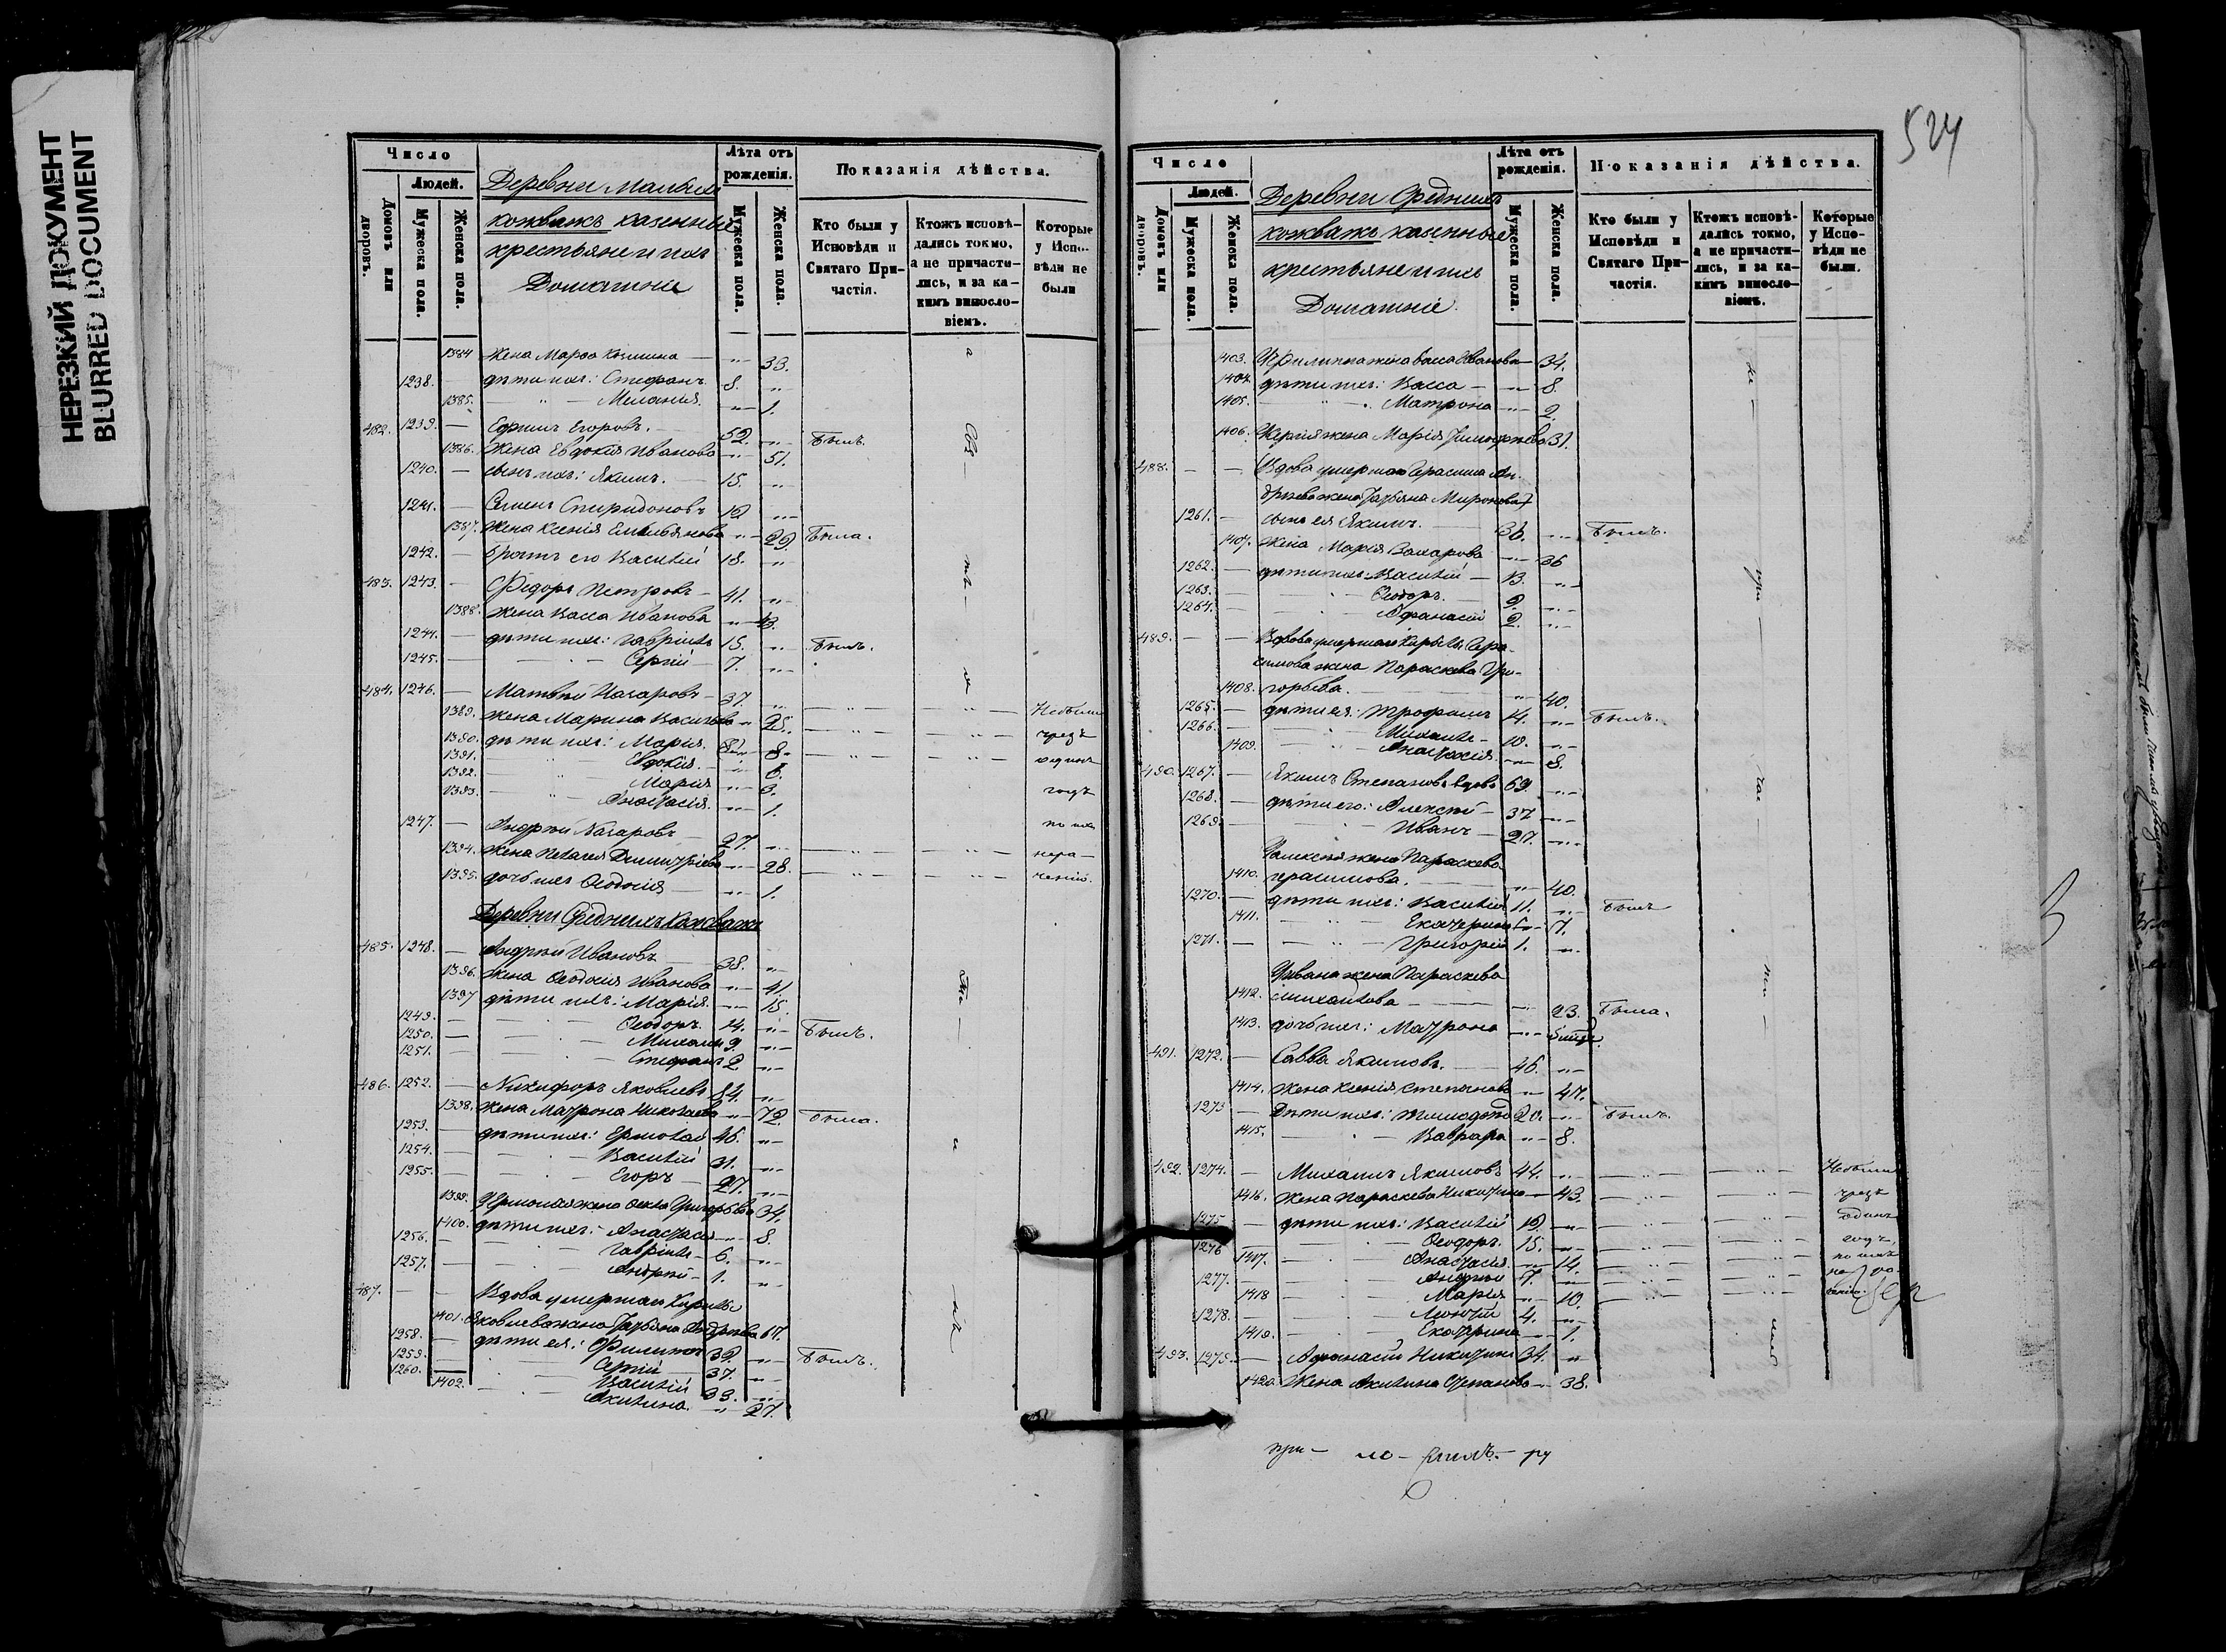 НЕРЕЗКИЙ ДОКУМЕНТ
BLURRED DOCUMENT
Число
Людей.
Домовъ или дворовъ.
Мужеска пола.
Женска пола.
Деревни Малыхъ
кожважъ казенные
крестьяне и ихъ
Домашніе
Лѣта отъ рожденія.
Мужеска пола.
Женска пола.
Показанія дѣйства.
Кто были у Исповѣди и Святаго Причастія.
Ктожъ исповѣдались токмо, а не причастились, и за какимъ винословіемъ.
Которые у Исповѣди не были
1384 Жена Марѳа Козмина — „ — 33.
1238. — дѣти ихъ: Стефанъ 8. „ —
1385. — „ — Меланія. „ — 1.
482. 1239. — Ефимъ Егоровъ. — 52. „ — Былъ.
1386. Жена Евдокія Иванова „ — 51.
1240. — сынъ ихъ: Якимъ. 15. „
1241. — Семенъ Спиридоновъ 19 „ —
1387. Жена Ксенія Емельянова „ — 29. Была.
1242. — братъ его Василій 18. „
483. 1243. — Ѳедоръ Петровъ — 41. „ —
1388. Жена Васса Иванова „ — 43.
1244. — дѣти ихъ: Гавріилъ 15. „ — Былъ.
1245. — Сергій — 7. „ —
484. 1246. — Матвѣй Назаровъ — 37. „ — Небыли
1389. Жена Марина Васильева „ 25. чрезъ
1390. дѣти ихъ: Марія. „ 8. одинъ
1391. — Евдокія. „ 6.
1392. — Марія „ — 3. годъ
1393. — Анастасія. „ — 1.
1247. — Андрей Назаровъ — 27. „ — по ихъ
1394. Жена Пелагея Димитріева „ — 28. нера-
1395. дочь ихъ Ѳеодосія „ — 1. ченію.
Деревни Среднихъ Кожважъ
485. 1248. — Андрей Ивановъ 38. „ —
1396. Жена Ѳеодосія Иванова „ — 41.
1397 дѣти ихъ: Марія. „ — 15.
1249. — Ѳеодоръ. 14. „ — Былъ.
1250. — Михаилъ 9. „ —
1251. — Стефанъ 2 „ —
486. 1252. — Никифоръ Яковлевъ 84. „ —
1398. Жена Матрона Николаева „ 72. Была.
1253. — дѣти ихъ: Ермолай 46. „ —
1254. — Василій 31. „ —
1255. — Егоръ — 27. „ —
1399. У Ермолая жена Ѳекла Григорьева 34.
1400. дѣти ихъ: Анастасія „ 8.
1256. — Гавріилъ — 6. „ —
1257. — Андрей — 1. „ —
487. — — Вдова умершаго Кирилы
1401. Яковлева жена Татьяна Андреева 67.
1258. — дѣти ея: Филипъ 39. „ — Былъ.
1259. — Сергій — 37. „ —
1260. — Василій 33. „ —
1402. — Акилина. „ — 27.
524
Число
Людей.
Домовъ или дворовъ.
Мужеска пола.
Женска пола.
Деревни Среднихъ
кожважъ казенные
крестьяне и ихъ
Домашніе.
Лѣта отъ рожденія.
Мужеска пола.
Женска пола.
Показанія дѣйства.
Кто были у Исповѣди и Святаго Причастія.
Ктожъ исповѣдались токмо, а не причастились, и за какимъ винословіемъ.
Которые у Исповѣди не были.
1403. У Филиппа жена Васса Иванова — 34.
1404. дѣти ихъ: Васса — „ — 8.
1405. — Матрона — „ — 2.
1406. У Сергія жена Марія Тимофеева 31.
488. — — Вдова умершаго Герасима Ан-
дреева жена Татьяна Миронова
1261. — сынъ ея Якимъ. — 36. „ — Былъ.
1407. Жена Марія Захарова „ — 36
1262. — дѣти ихъ: Василій — 13. „ —
1263. — Ѳеодоръ. — 9. „ —
1264. — Афанасій 2. „ —
489. — — Вдова умершаго Кирылы Гера-
симова жена Параскева Гри-
1408. горьева. „ — 40.
1265. — дѣти ея: Трофимъ 14. „ — Былъ.
1266. — Михаилъ — 10. „ —
1409. — Анастасія. „ — 8.
490. 1267. — Якимъ Степановъ вдовъ 69. „ —
1268. — дѣти его: Алексѣй — 37 „ —
1269. — Иванъ — 27. „ —
У Алексѣя жена Параскева
1410. Герасимова. „ — 40.
1270. — дѣти ихъ: Василій 11. „ — Былъ
1411. — Екатерина „ — 7.
1271. — Григорій 1. „
У Ивана жена Параскева
1412. Михайлова — „ — 23. Была.
1413. дочь ихъ: Матрона „ —
491. 1272. — Савва Якимовъ. — 46. „ —
1414. Жена Ксенія Степанова „ — 47.
1273 — Дѣти ихъ: Тимоѳей 20. „ — Былъ.
1415. — Варвара „ — 8.
492. 1274. — Михаилъ Якимовъ 44. „ — Небыли
1416. Жена Параскева Никитина — 43. чрезъ
1275 — дѣти ихъ: Василій 19. „ — одинъ
1276 — Ѳеодоръ. 15. „ — годъ,
1417. — Анастасія. „ — 14. по ихъ
1277. — Андрей 7. „ —
1418 — Марія „ — 10.
1278. — 4. „ —
1419. — Екатерина — 1.
493. 1279. — Афанасій Никитинъ 34. „
1420. Жена Акилина Степанова — 38.